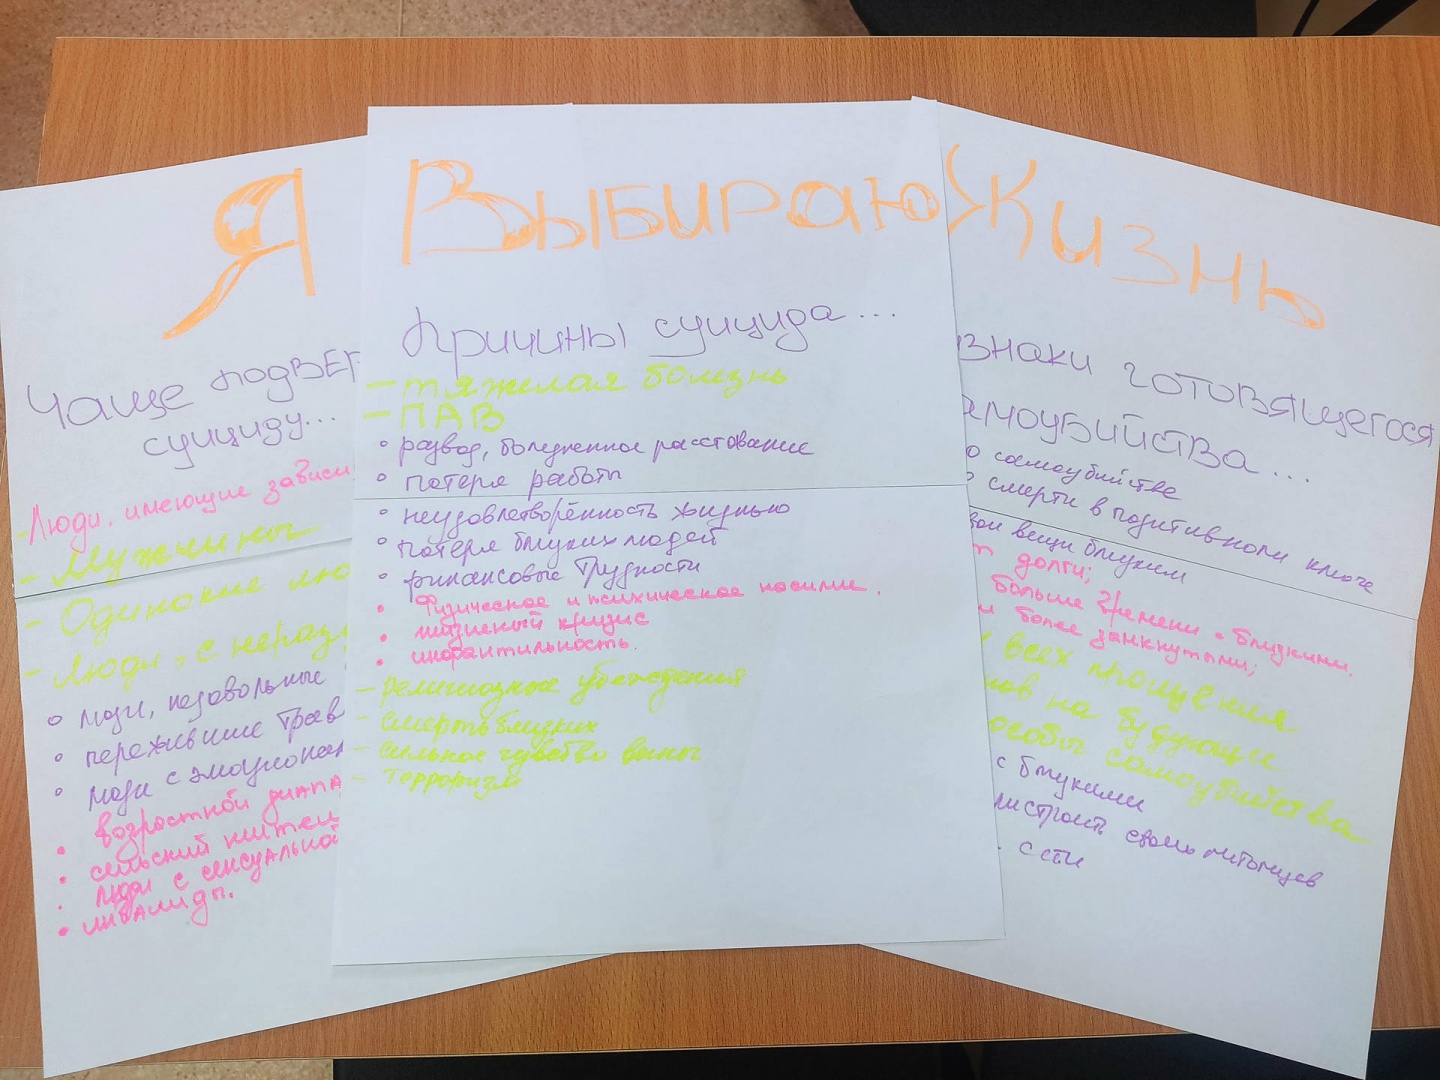 Я Выбираю Жизнь
Чаще подвер
суициду...
Люди, имеющие зависи
- Мужчины
- Одинокие лю
- Люди, с нераз
о люди, недовольные
о пережившие трав
о люди с эмоционал
• возростной диапа
• сельский жител
• люди с сексуальной
• инвалиды.
Причины суицида...
- тяжелая болезнь
- ПАВ
о развод, болезненное расставание
о потеря работы
о неудовлетворённость жизнью
о потеря близких людей
о финансовые трудности
• Физическое и психическое насилие.
• жизненый кризис
• инфантильность.
- религиозные убеждения
- смерть близких
- сильное чувство вины
- терроризм
знаки готовящегося
амоубийства...
о самоубийстве
смерти в позитивном ключе
вои вещи близким
т долги;
больше времени с близкими.
и более замкнутыми;
всех прощения
нов на будующие
особы самоубийства
с близкими
ристроить своих питомцев
сети